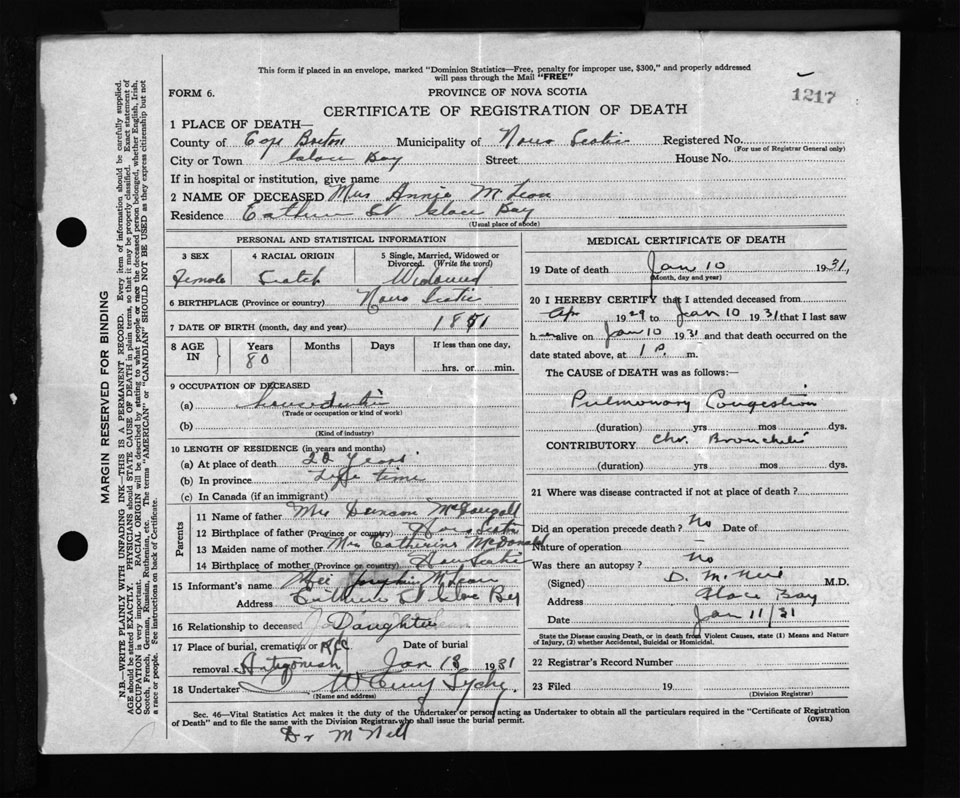 This form if placed in an envelope, marked "Dominion Statistics—Free, penalty for improper use, $300," and properly addressed
will pass through the Mail "FREE"
FORM 6.
PROVINCE OF NOVA SCOTIA
1217
CERTIFICATE OF REGISTRATION OF DEATH
1 PLACE OF DEATH—
County of Cape Breton Municipality of Nova Scotia Registered No.
(For use of Registrar General only)
City or Town Glace Bay Street House No.
If in hospital or institution, give name
2 NAME OF DECEASED Mrs Annie McLean
Residence St Glace Bay
(Usual place of abode)
PERSONAL AND STATISTICAL INFORMATION
3 SEX 4 RACIAL ORIGIN 5 Single, Married, Widowed or
Divorced. (Write the word)
Female Scotch Widowed
6 BIRTHPLACE (Province or country) Nova Scotia
7 DATE OF BIRTH (month, day and year) 1851
8 AGE IN Years Months Days If less than one day,
80 hrs. or min.
9 OCCUPATION OF DECEASED
(a) house duties
(Trade or occupation or kind of work)
(b)
(Kind of industry)
10 LENGTH OF RESIDENCE (in years and months)
(a) At place of death 22 Years
(b) In province Life time
(c) In Canada (if an immigrant)
Parents
11 Name of father Mr Duncan McDougall
12 Birthplace of father (Province or country) Nova Scotia
13 Maiden name of mother Mrs Catherine McDonald
14 Birthplace of mother (Province or country) Nova Scotia
15 Informant's name Josephine McLean
Address St Glace Bay
16 Relationship to deceased Daughter
17 Place of burial, cremation or Date of burial
removal Antigonish Jan 13 1931
18 Undertaker
(Name and address)
MEDICAL CERTIFICATE OF DEATH
19 Date of death Jan 10 1931,
(Month, day and year)
20 I HEREBY CERTIFY that I attended deceased from
Apr 1929 to Jan 10 1931 that I last saw
h alive on Jan 10 1931 and that death occurred on the
date stated above, at 1 P. m.
The CAUSE of DEATH was as follows:—
Pulmonary Congestion
(duration) yrs mos dys.
CONTRIBUTORY Chr. Bronchitis
(duration) yrs mos dys.
21 Where was disease contracted if not at place of death?
Did an operation precede death? No Date of
Nature of operation
Was there an autopsy? No
(Signed) D. McNeil M.D.
Address Glace Bay
Date Jan 11/31
State the Disease causing Death, or in death from Violent Causes, state (1) Means and Nature
of Injury, (2) whether Accidental, Suicidal or Homicidal.
22 Registrar's Record Number
23 Filed 19
(Division Registrar)
Sec. 46—Vital Statistics Act makes it the duty of the Undertaker or person acting as Undertaker to obtain all the particulars required in the "Certificate of Registration
of Death" and to file the same with the Division Registrar who shall issue the burial permit.
(OVER)
Dr McNeil
MARGIN RESERVED FOR BINDING
N.B.—WRITE PLAINLY WITH UNFADING INK—THIS IS A PERMANENT RECORD. Every item of information should be carefully supplied.
AGE should be stated EXACTLY. PHYSICIANS should STATE CAUSE OF DEATH in plain terms, so that it may be properly classified. Exact statement of
OCCUPATION is very important. RACIAL ORIGIN will be described by stating to what people or race the deceased person belonged, whether English, Irish,
Scotch, French, German, Russian, Ruthenian, etc. The terms "AMERICAN" or "CANADIAN" SHOULD NOT BE USED as they express citizenship but not
a race or people. See instructions on back of Certificate.